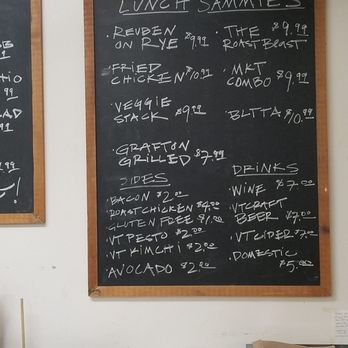 LUNCH SAMMIES
· REUBEN ON RYE $9.99
· FRIED CHICKEN $10.99
· VEGGIE STACK $9.99
· GRAFTON GRILLED $7.99
· THE ROAST BEAST $9.99
· MKT COMBO $9.99
· BLTTA $10.99
SIDES
· BACON $2.00
· ROAST CHICKEN $4.00
· GLUTEN FREE $1.00
· VT PESTO $2.00
· VT KIMCHI $2.00
· AVOCADO $2.00
DRINKS
· WINE $7.00
· VT CRAFT BEER $7.00
· VT CIDER $7.00
· DOMESTIC $5.00